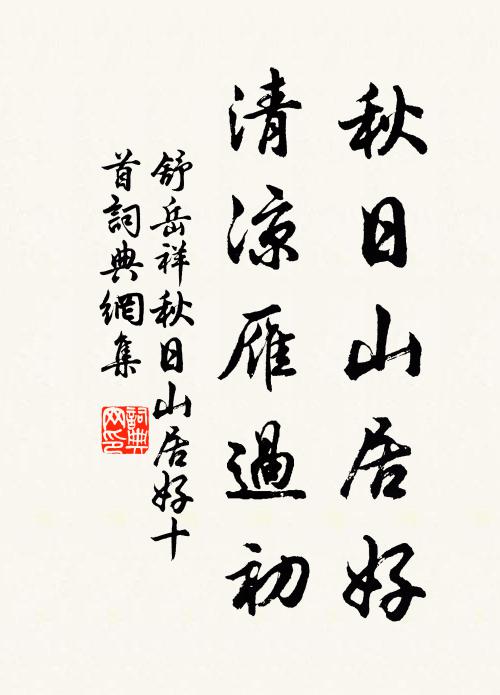 秋日山居好
清涼雁過初
舒岳祥秋日山居好十
首詞典網集
詞典
网印